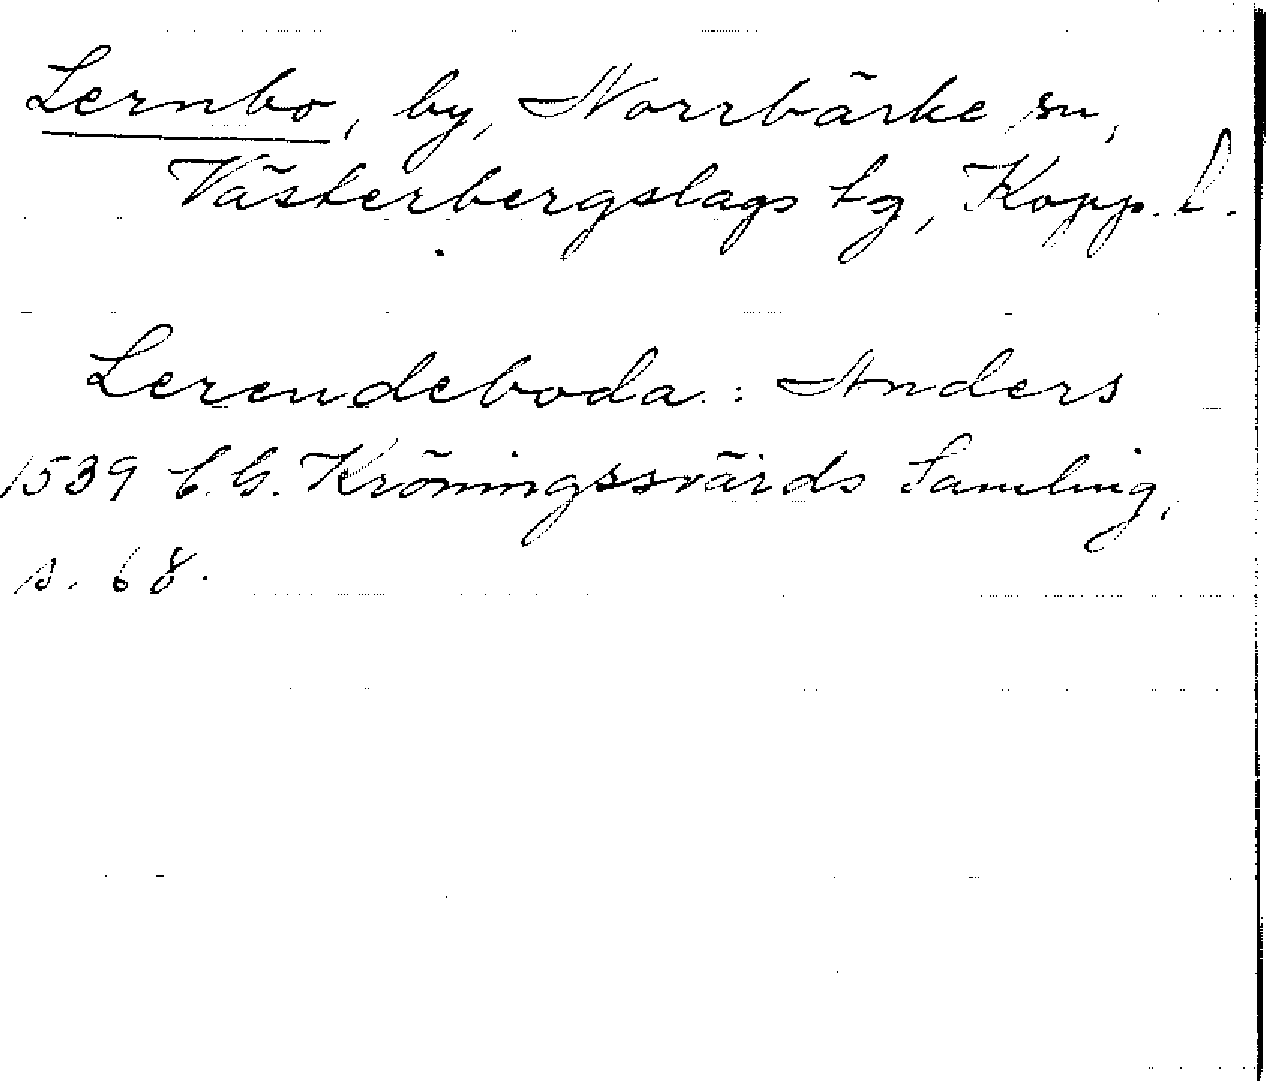 Lernbo, by, Norrbärke sn,
Västerbergslags tg, Kopp. l.
Lerendeboda: Anders
1539 C.G. Kröningssvärds Samling,
s. 68.